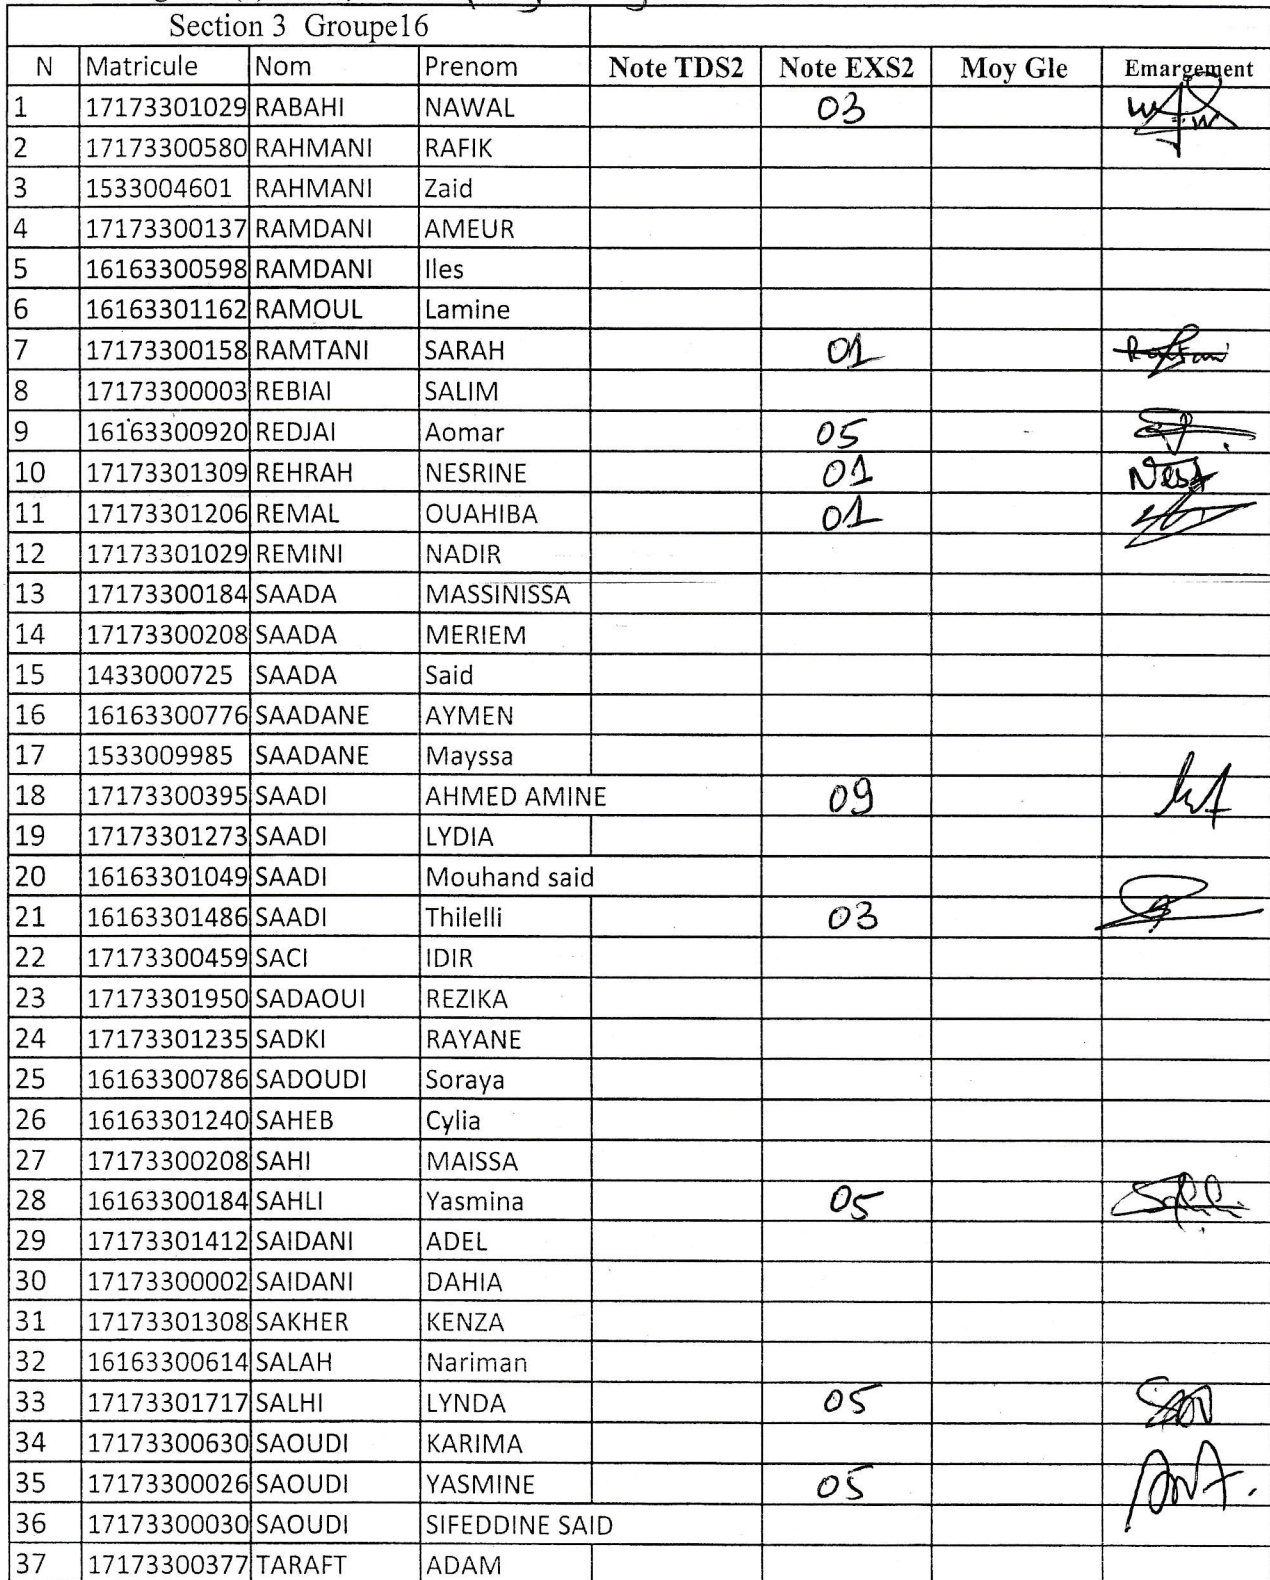 Section 3 Groupe16
N Matricule Nom Prenom Note TDS2 Note EXS2 Moy Gle Emargement
1 17173301029 RABAHI NAWAL 03
2 17173300580 RAHMANI RAFIK
3 1533004601 RAHMANI Zaid
4 17173300137 RAMDANI AMEUR
5 16163300598 RAMDANI Iles
6 16163301162 RAMOUL Lamine
7 17173300158 RAMTANI SARAH 01
8 17173300003 REBIAI SALIM
9 16163300920 REDJAI Aomar 05
10 17173301309 REHRAH NESRINE 01
11 17173301206 REMAL OUAHIBA 01
12 17173301029 REMINI NADIR
13 17173300184 SAADA MASSINISSA
14 17173300208 SAADA MERIEM
15 1433000725 SAADA Said
16 16163300776 SAADANE AYMEN
17 1533009985 SAADANE Mayssa
18 17173300395 SAADI AHMED AMINE 09
19 17173301273 SAADI LYDIA
20 16163301049 SAADI Mouhand said
21 16163301486 SAADI Thilelli 03
22 17173300459 SACI IDIR
23 17173301950 SADAOUI REZIKA
24 17173301235 SADKI RAYANE
25 16163300786 SADOUDI Soraya
26 16163301240 SAHEB Cylia
27 17173300208 SAHI MAISSA
28 16163300184 SAHLI Yasmina 05
29 17173301412 SAIDANI ADEL
30 17173300002 SAIDANI DAHIA
31 17173301308 SAKHER KENZA
32 16163300614 SALAH Nariman
33 17173301717 SALHI LYNDA 05
34 17173300630 SAOUDI KARIMA
35 17173300026 SAOUDI YASMINE 05
36 17173300030 SAOUDI SIFEDDINE SAID
37 17173300377 TARAFT ADAM